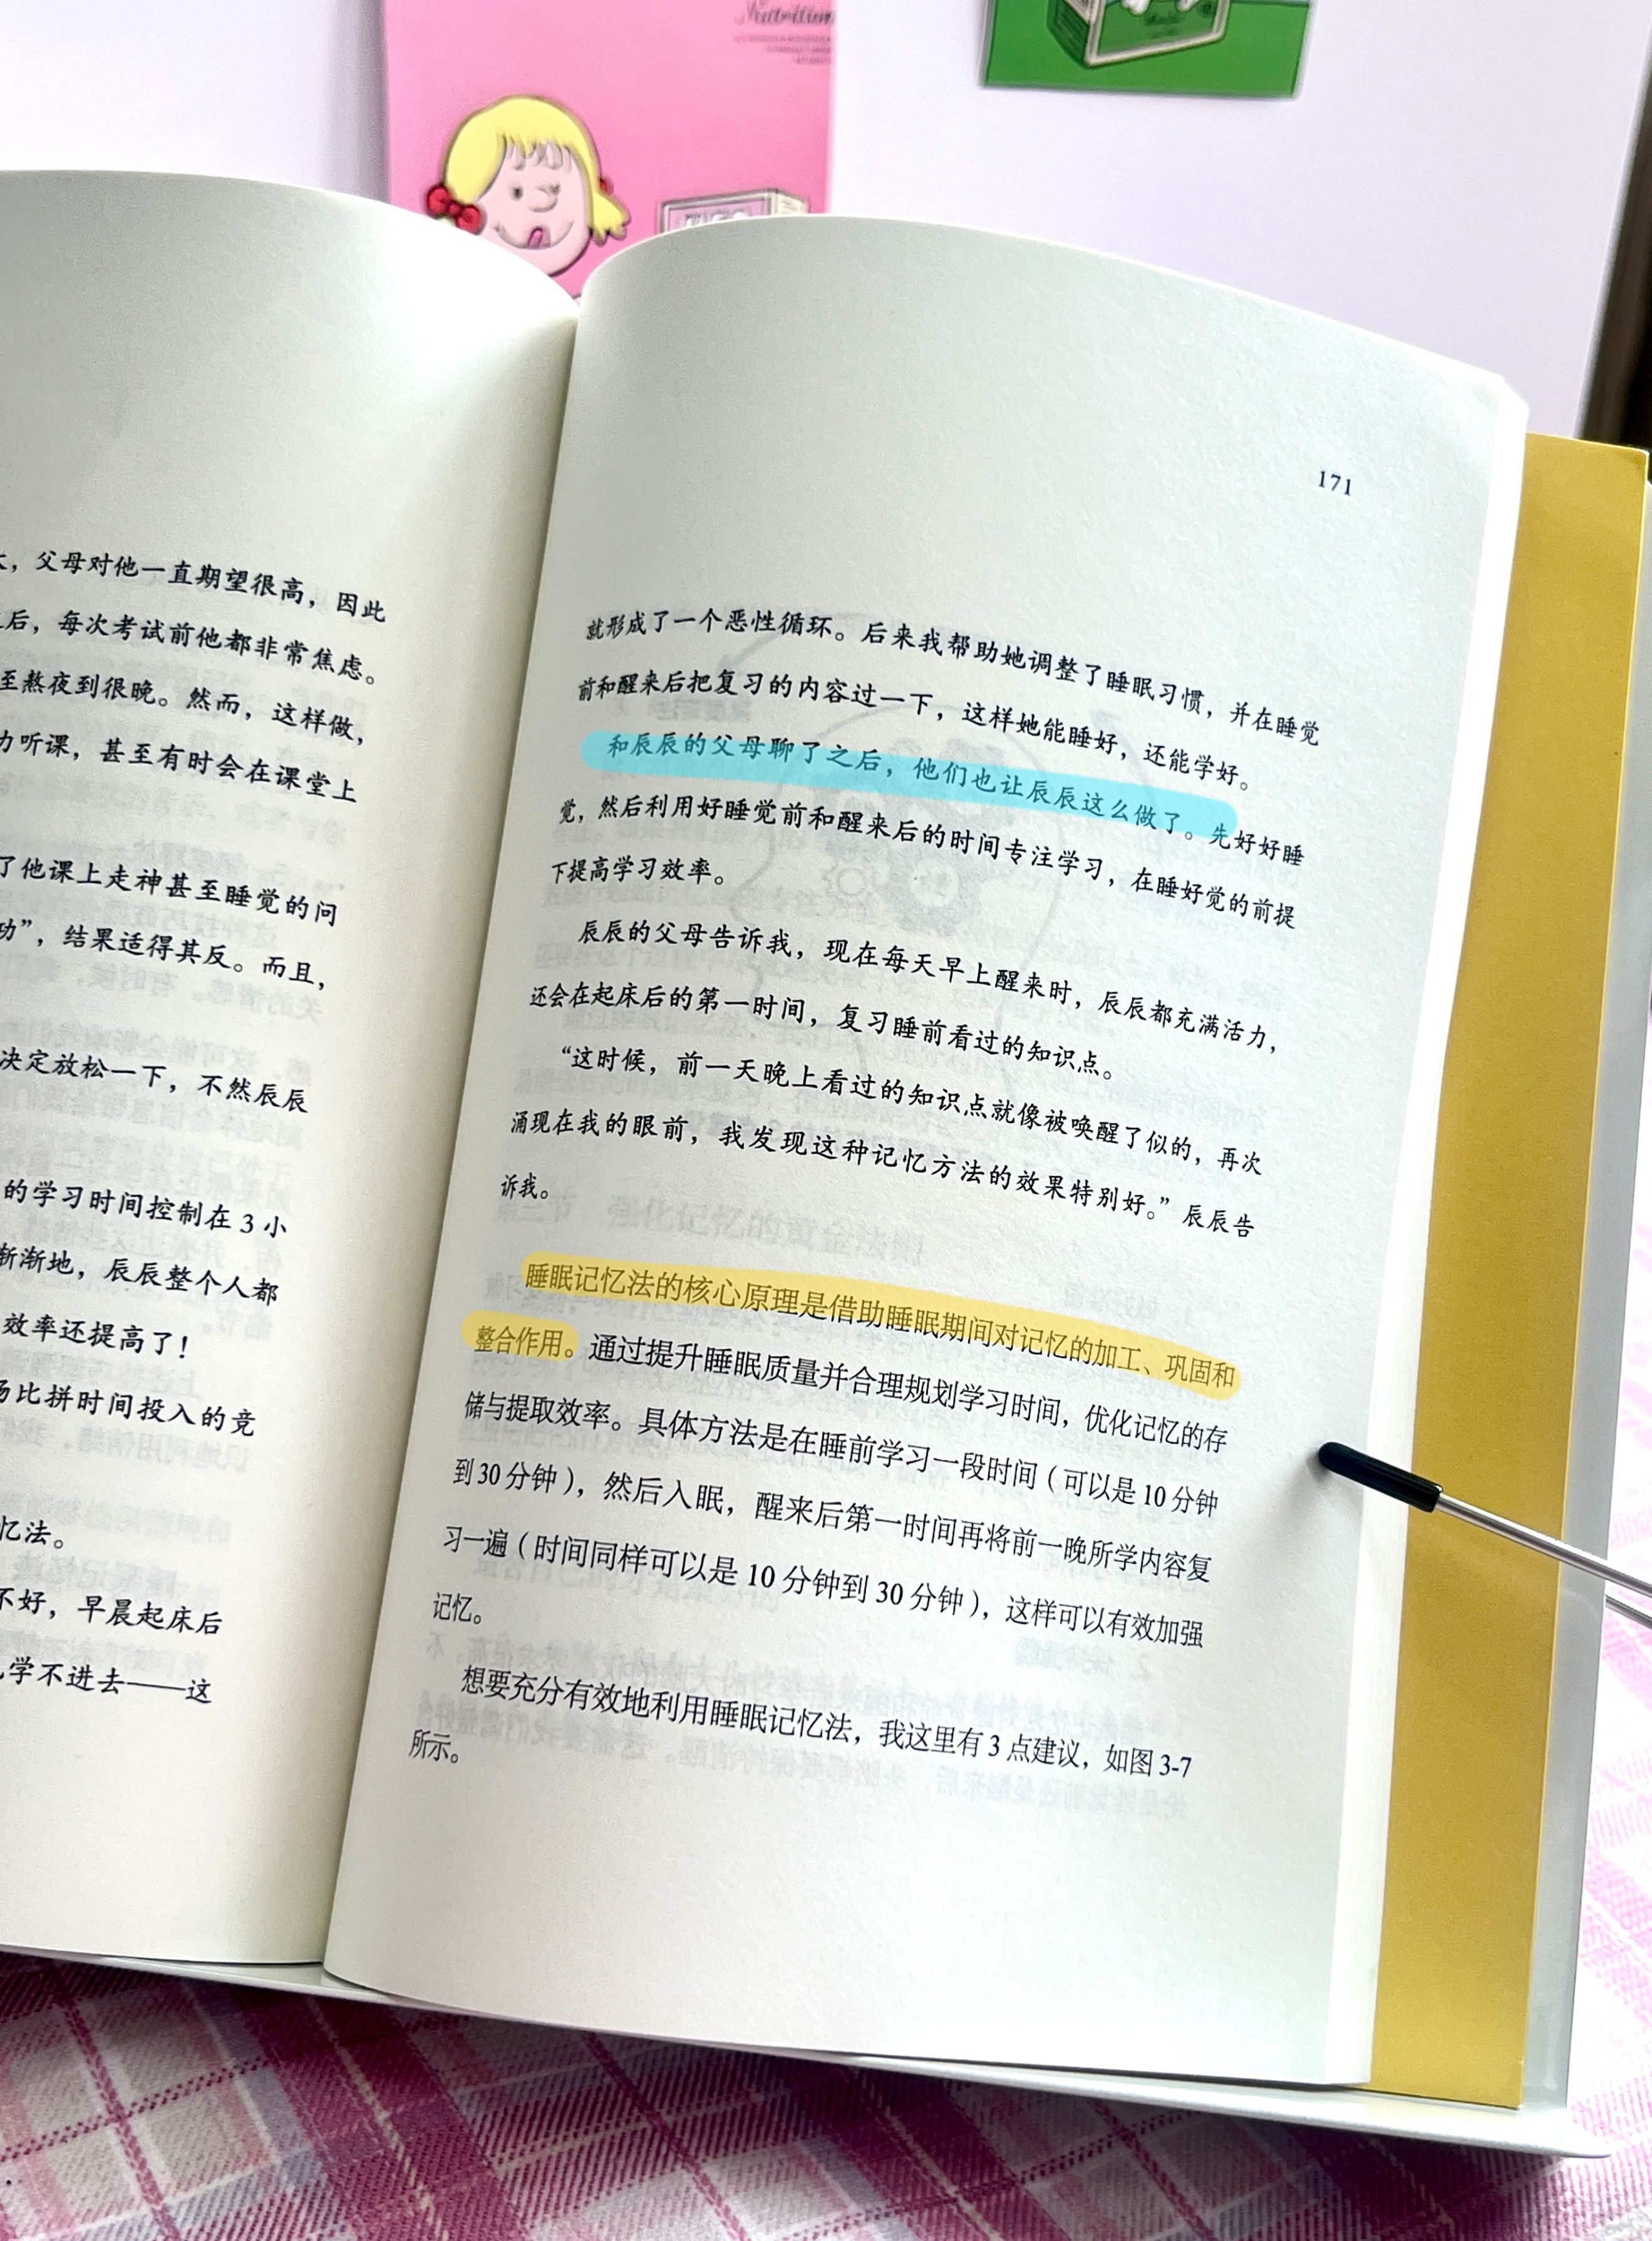 Nutrition
，父母对他一直期望很高，因此
后，每次考试前他都非常焦虑。
至熬夜到很晚。然而，这样做，
力听课，甚至有时会在课堂上
了他课上走神甚至睡觉的问
功”，结果适得其反。而且，
决定放松一下，不然辰辰
的学习时间控制在 3 小
渐渐地，辰辰整个人都
效率还提高了！
场比拼时间投入的竞
忆法。
不好，早晨起床后
学不进去——这
171
就形成了一个恶性循环。后来我帮助她调整了睡眠习惯，并在睡觉
前和醒来后把复习的内容过一下，这样她能睡好，还能学好。
和辰辰的父母聊了之后，他们也让辰辰这么做了。先好好睡
觉，然后利用好睡觉前和醒来后的时间专注学习，在睡好觉的前提
下提高学习效率。
辰辰的父母告诉我，现在每天早上醒来时，辰辰都充满活力，
还会在起床后的第一时间，复习睡前看过的知识点。
“这时候，前一天晚上看过的知识点就像被唤醒了似的，再次
涌现在我的眼前，我发现这种记忆方法的效果特别好。”辰辰告
诉我。
睡眠记忆法的核心原理是借助睡眠期间对记忆的加工、巩固和
整合作用。通过提升睡眠质量并合理规划学习时间，优化记忆的存
储与提取效率。具体方法是在睡前学习一段时间（可以是 10 分钟
到 30 分钟），然后入眠，醒来后第一时间再将前一晚所学内容复
习一遍（时间同样可以是 10 分钟到 30 分钟），这样可以有效加强
记忆。
想要充分有效地利用睡眠记忆法，我这里有 3 点建议，如图 3-7
所示。